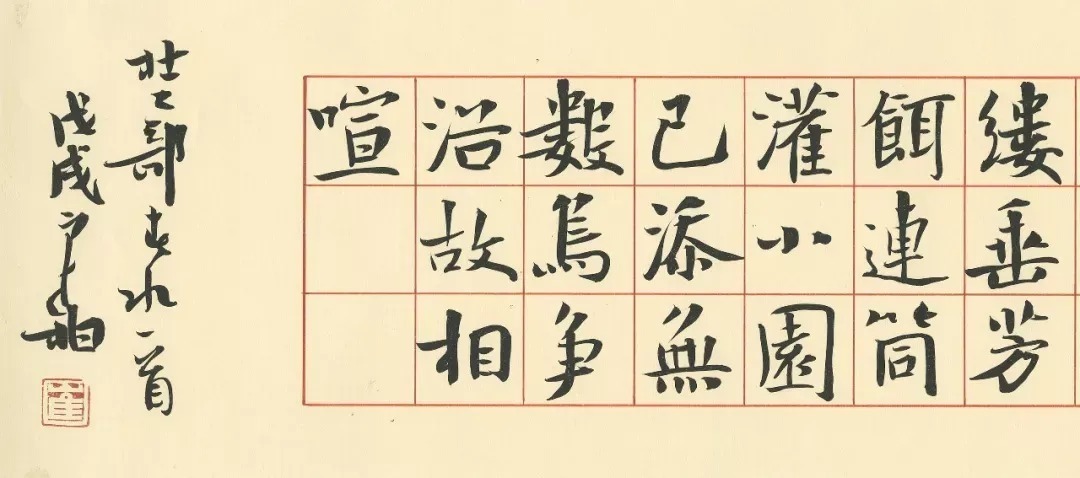 縷垂芳
餌連筒
灌小園
已添無
數鳥争
浴故相
喧
杜工部春水一首
戊戌寒柏
崔